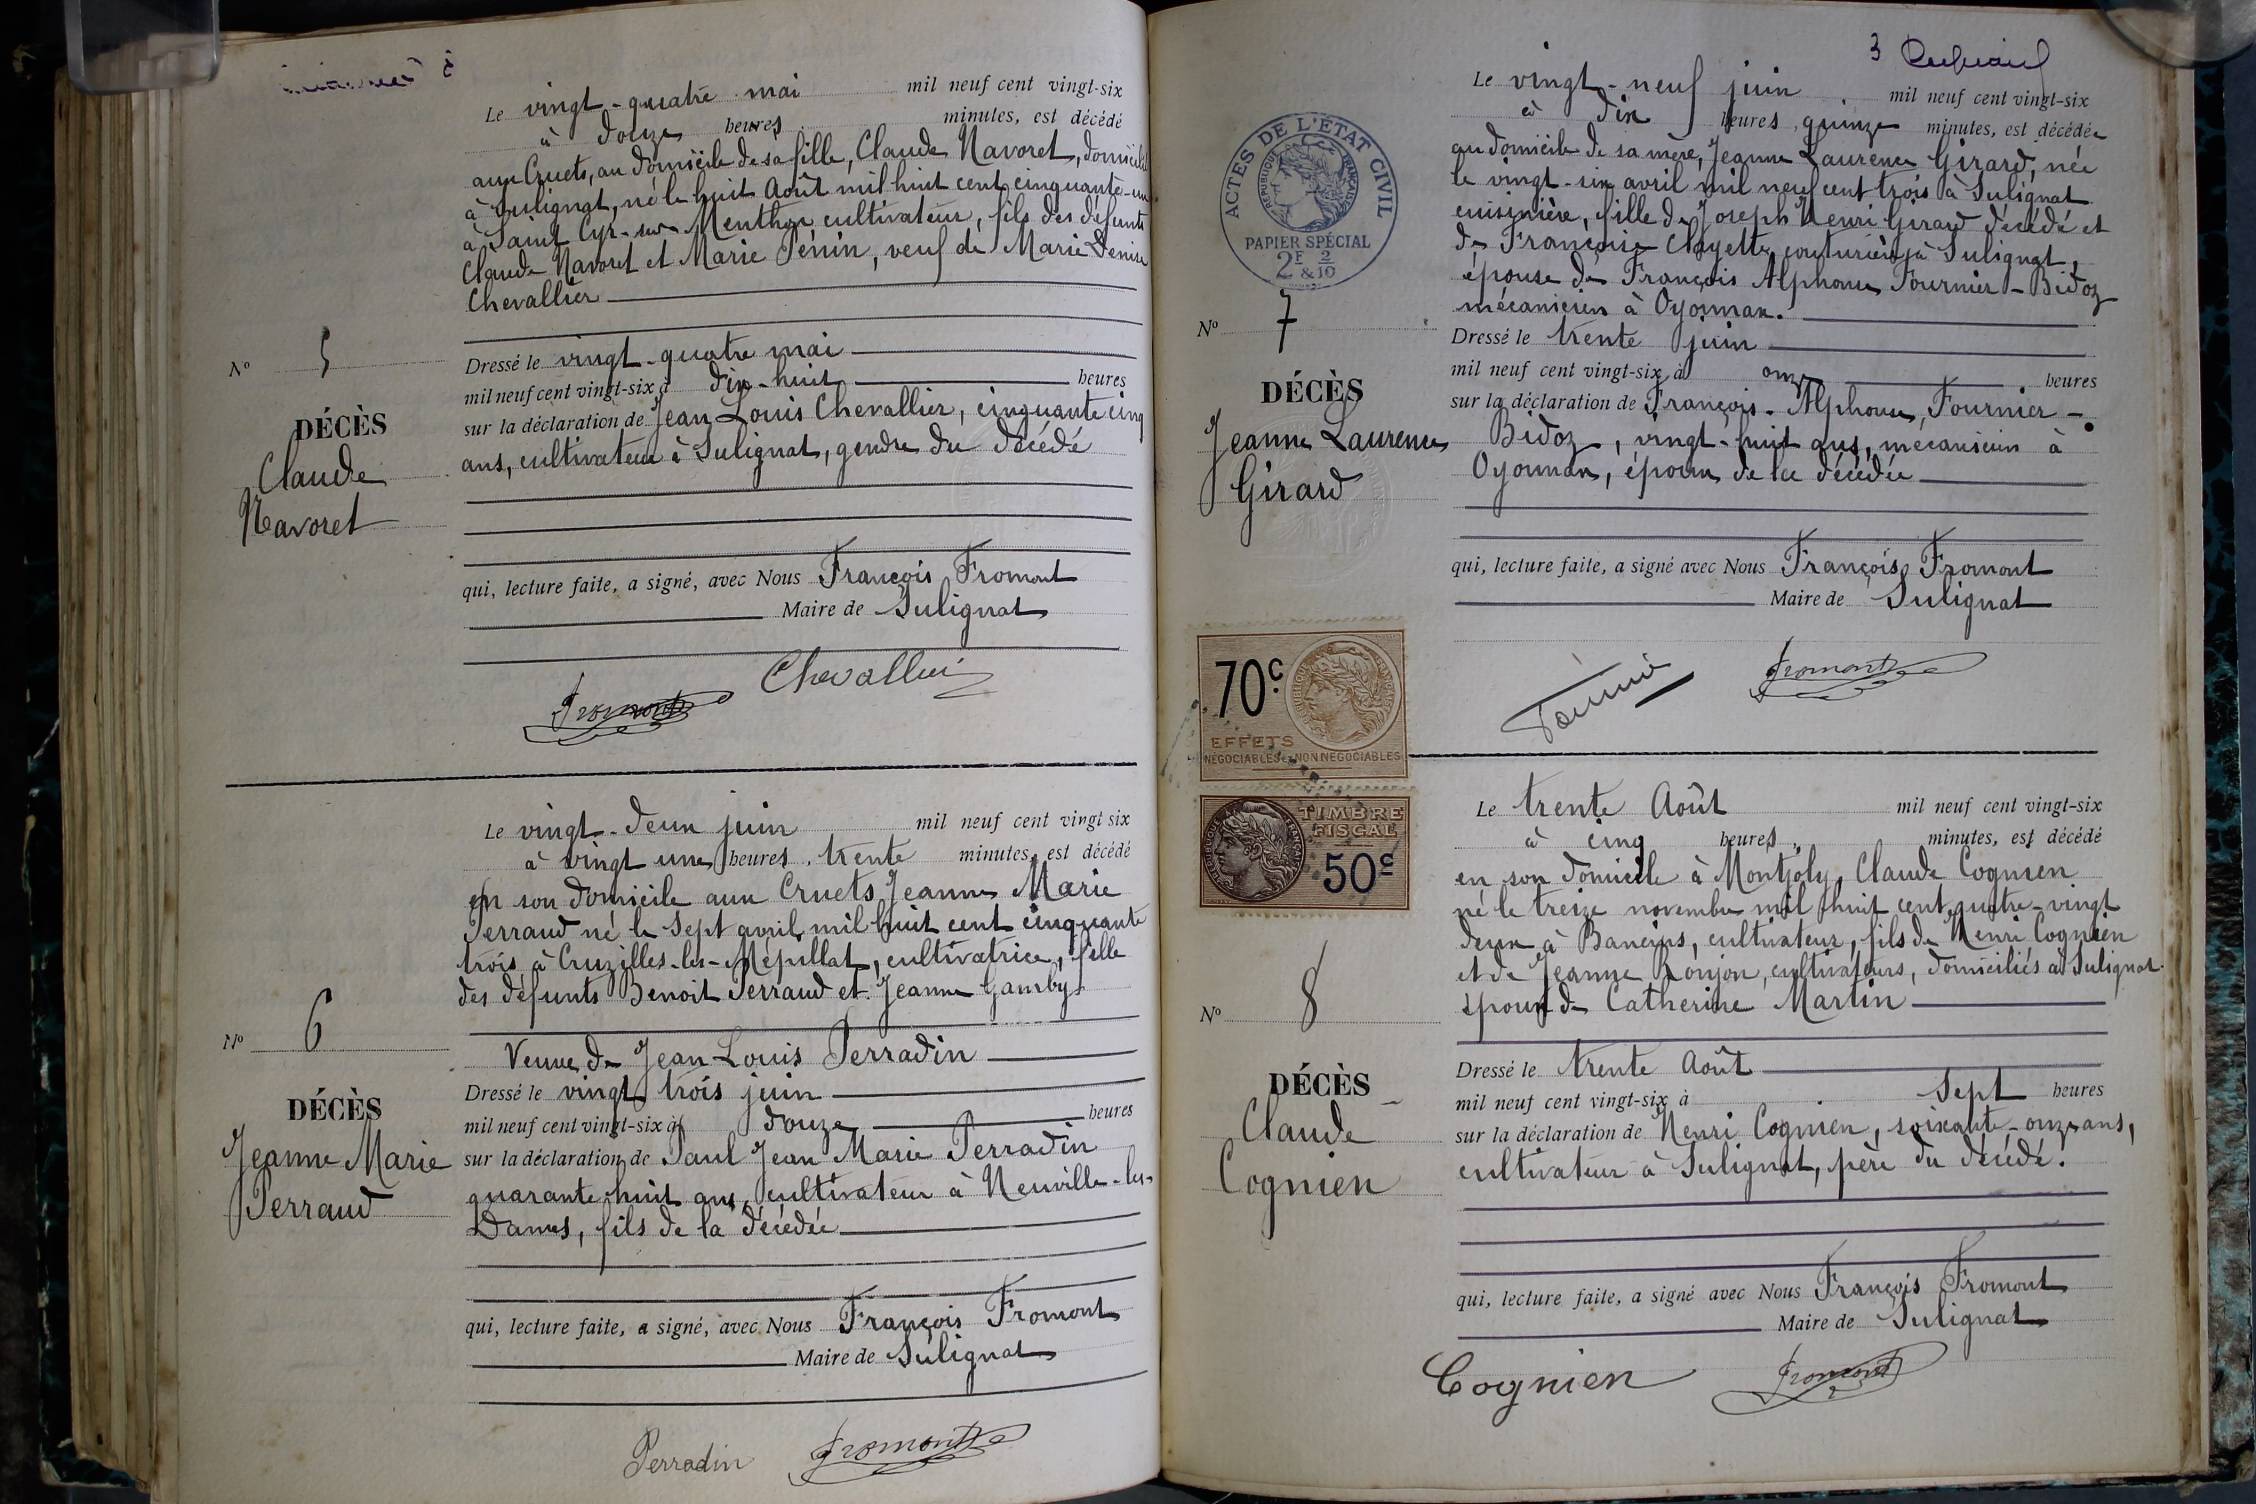 Le vingt-quatre mai mil neuf cent vingt-six
à douze heures minutes, est décédé
aux Cruets, au domicile de sa fille, Claude Navoret, domicilié
à Sulignat, né le huit Août mil huit cent cinquante-un
à Saint Cyr-sur-Menthon, cultivateur, fils des défunts
Claude Navoret et Marie Penin, veuf de Marie Denise
Chevallier
Nº 5
DÉCÈS
Claude
Navoret
Dressé le vingt-quatre mai
mil neuf cent vingt-six à dix-huit heures
sur la déclaration de Jean Louis Chevallier, cinquante cinq
ans, cultivateur à Sulignat, gendre du décédé
qui, lecture faite, a signé, avec Nous François Fromont
Maire de Sulignat
Chevallier
Fromont
Le vingt-deux juin mil neuf cent vingt six
à vingt une heures, trente minutes, est décédé
en son domicile aux Cruets Jeanne Marie
Perraud né le sept avril mil huit cent cinquante
trois à Cruzilles-les-Mépillat, cultivatrice, fille
des défunts Benoit Perraud et Jeanne Gamby
Veuve de Jean Louis Perradin
Nº 6
DÉCÈS
Jeanne Marie
Perraud
Dressé le vingt trois juin
mil neuf cent vingt-six à douze heures
sur la déclaration de Paul Jean Marie Perradin
quarante huit ans, cultivateur à Neuville-les-
Dames, fils de la décédée
qui, lecture faite, a signé, avec Nous François Fromont
Maire de Sulignat
Perradin Fromont
3
Le vingt-neuf juin mil neuf cent vingt-six
à dix heures quinze minutes, est décédée
au domicile de sa mère, Jeanne Laurence Girard, née
le vingt-six avril mil neuf cent trois à Sulignat
cuisinière, fille de Joseph Henri Girard décédé et
de Françoise Clayette, couturière à Sulignat,
épouse de François Alphonse Fournier-Bidoz
mécanicien à Oyonnax.
ACTES DE L'ÉTAT CIVIL
RÉPUBLIQUE FRANÇAISE
PAPIER SPÉCIAL
2F & 2/10
Nº 7
DÉCÈS
Jeanne Laurence
Girard
Dressé le trente juin
mil neuf cent vingt-six à onze heures
sur la déclaration de François-Alphonse, Fournier-
Bidoz, vingt-huit ans, mécanicien à
Oyonnax, époux de la décédée
qui, lecture faite, a signé avec Nous François Fromont
Maire de Sulignat
Fromont
70c
EFFETS
NÉGOCIABLES & NON NÉGOCIABLES
TIMBRE
FISCAL
50c
Le trente Août mil neuf cent vingt-six
à cinq heures, minutes, est décédé
en son domicile à Montjoly, Claude Cognien
né le treize novembre mil huit cent quatre-vingt
deux à Baneins, cultivateur, fils de Henri Cognien
et de Jeanne Roujon, cultivateurs, domiciliés à Sulignat.
époux de Catherine Martin
Nº 8
DÉCÈS
Claude
Cognien
Dressé le trente Août
mil neuf cent vingt-six à sept heures
sur la déclaration de Henri Cognien, soixante-onze ans,
cultivateur à Sulignat, père du décédé.
qui, lecture faite, a signé avec Nous François Fromont
Maire de Sulignat
Cognien Fromont